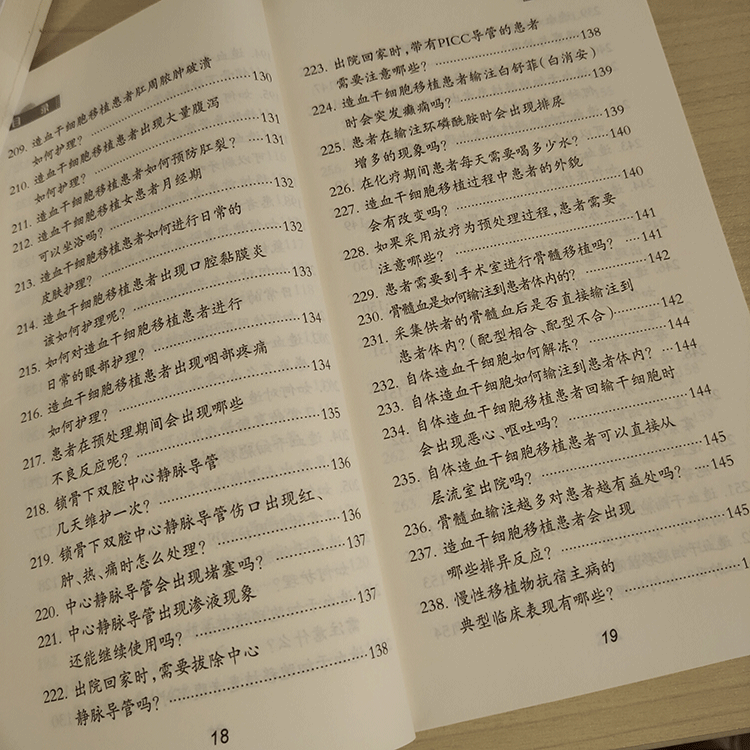 目 录
209. 造血干细胞移植患者肛周脓肿破溃
如何护理？……………………130
210. 造血干细胞移植患者出现大量腹泻
如何护理？……………………131
211. 造血干细胞移植患者如何预防肛裂？…131
212. 造血干细胞移植女患者月经期
可以坐浴吗？……………………132
213. 造血干细胞移植患者如何进行日常的
皮肤护理？……………………132
214. 造血干细胞移植患者出现口腔黏膜炎
该如何护理呢？……………………133
215. 如何对造血干细胞移植患者进行
日常的眼部护理？……………………134
216. 造血干细胞移植患者出现咽部疼痛
如何护理？……………………134
217. 患者在预处理期间会出现哪些
不良反应呢？……………………135
218. 锁骨下双腔中心静脉导管
几天维护一次？……………………136
219. 锁骨下双腔中心静脉导管伤口出现红、
肿、热、痛时怎么处理？……………136
220. 中心静脉导管会出现堵塞吗？………137
221. 中心静脉导管出现渗液现象
还能继续使用吗？……………………137
222. 出院回家时，需要拔除中心
静脉导管吗？……………………138
18
223. 出院回家时，带有PICC导管的患者
需要注意哪些？……………………138
224. 造血干细胞移植患者输注白舒菲（白消安）
时会突发癫痫吗？……………………139
225. 患者在输注环磷酰胺时会出现排尿
增多的现象吗？……………………139
226. 在化疗期间患者每天需要喝多少水？…140
227. 造血干细胞移植过程中患者的外貌
会有改变吗？……………………140
228. 如果采用放疗为预处理过程，患者需要
注意哪些？……………………141
229. 患者需要到手术室进行骨髓移植吗？…141
230. 骨髓血是如何输注到患者体内的？…142
231. 采集供者的骨髓血后是否直接输注到
患者体内？（配型相合、配型不合）………142
232. 自体造血干细胞如何解冻？…………144
233. 自体造血干细胞如何输注到患者体内？…144
234. 自体造血干细胞移植患者回输干细胞时
会出现恶心、呕吐吗？……………………144
235. 自体造血干细胞移植患者可以直接从
层流室出院吗？……………………145
236. 骨髓血输注越多对患者越有益处吗？…145
237. 造血干细胞移植患者会出现
哪些排异反应？……………………145
238. 慢性移植物抗宿主病的
典型临床表现有哪些？……………………1
19